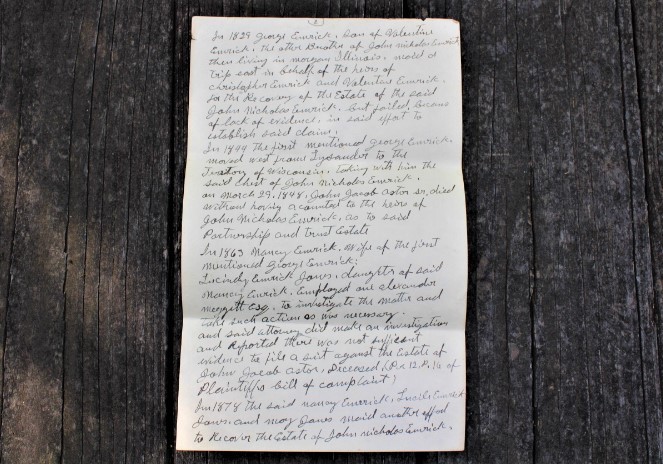 2
In 1829 George Emrick, Son of Valentine
Emrick, the other Brother of John Nicholas Emrick
then living in morgan Illinois, made a
trip east in behalf of the heirs of
Christopher Emrick and Valentine Emrick.
for the Recovery of the Estate of the said
John Nicholas Emrick. but failed, because
of lack of evidence, in said effort to
establish said claim.
In 1844 the first mentioned George Emrick
moved west from Lysander to the
Teritory of Wisconsin, taking with him the
said Chest of John Nicholas Emrick.
on March 29, 1848, John Jacob Astor Sr, died
without having accounted to the heirs of
John Nicholas Emrick, as to said
Partnership and trust Estate
In 1863 Nancy Emrick, Wife of the first
mentioned George Emrick:
Emrick Jones, daughter of said
Nancy Emrick. Employed one Alexander
Meggett Esq, to investigate the matter and
take such action as was necessary.
and said attorney did make an investigation
and Reported there was not
evidence to file a suit against the Estate of
John Jacob Astor, Deceased (Par 12. P. 14 of
Plaintiffs bill of complaint)
In 1878 the said Nancy Emrick, Emrick
Jones and May Jones maid another effort
to Recover the Estate of John Nicholas Emrick.